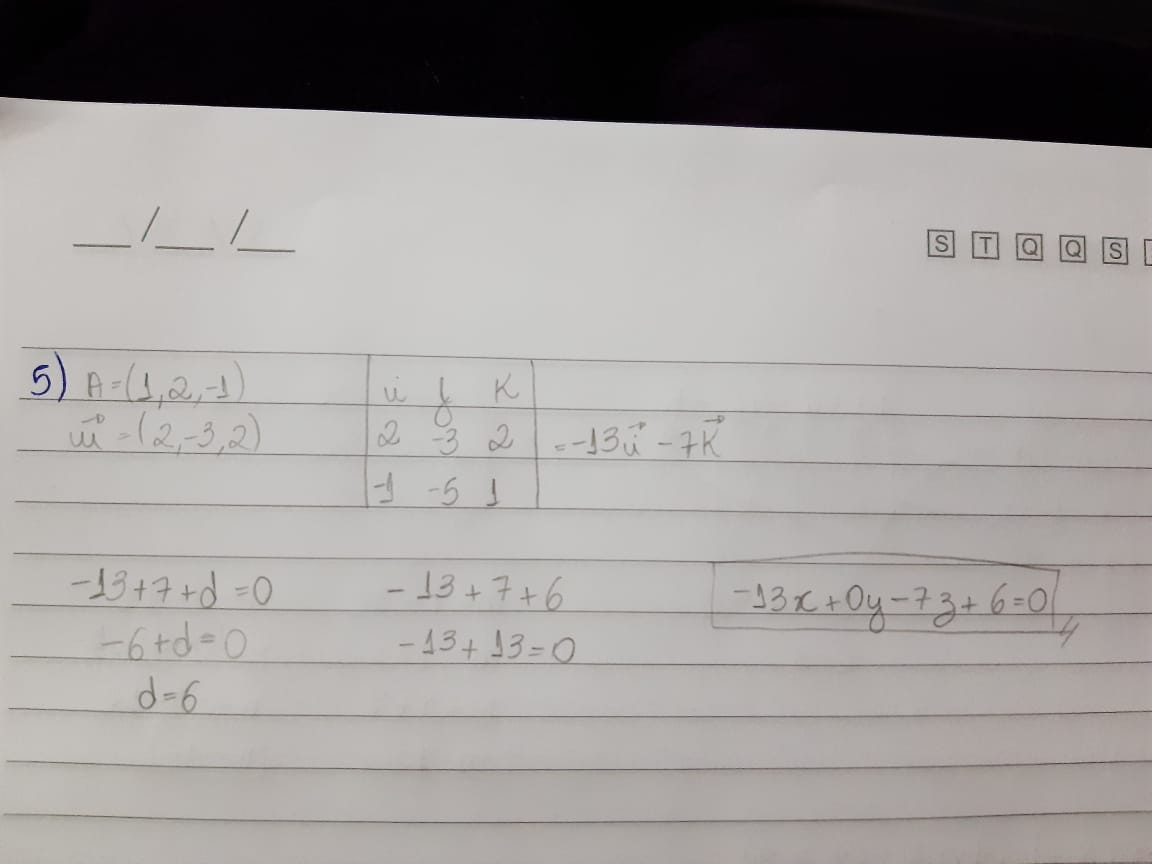 __/__/__
S T Q Q S
5) A=(1,2,-1)
u⃗ =(2,-3,2)
i j K
2 -3 2
-1 -5 1
=-13i⃗ -7K⃗
-13+7+d=0
-6+d=0
d=6
-13+7+6
-13+13=0
-13x+0y-7z+6=0